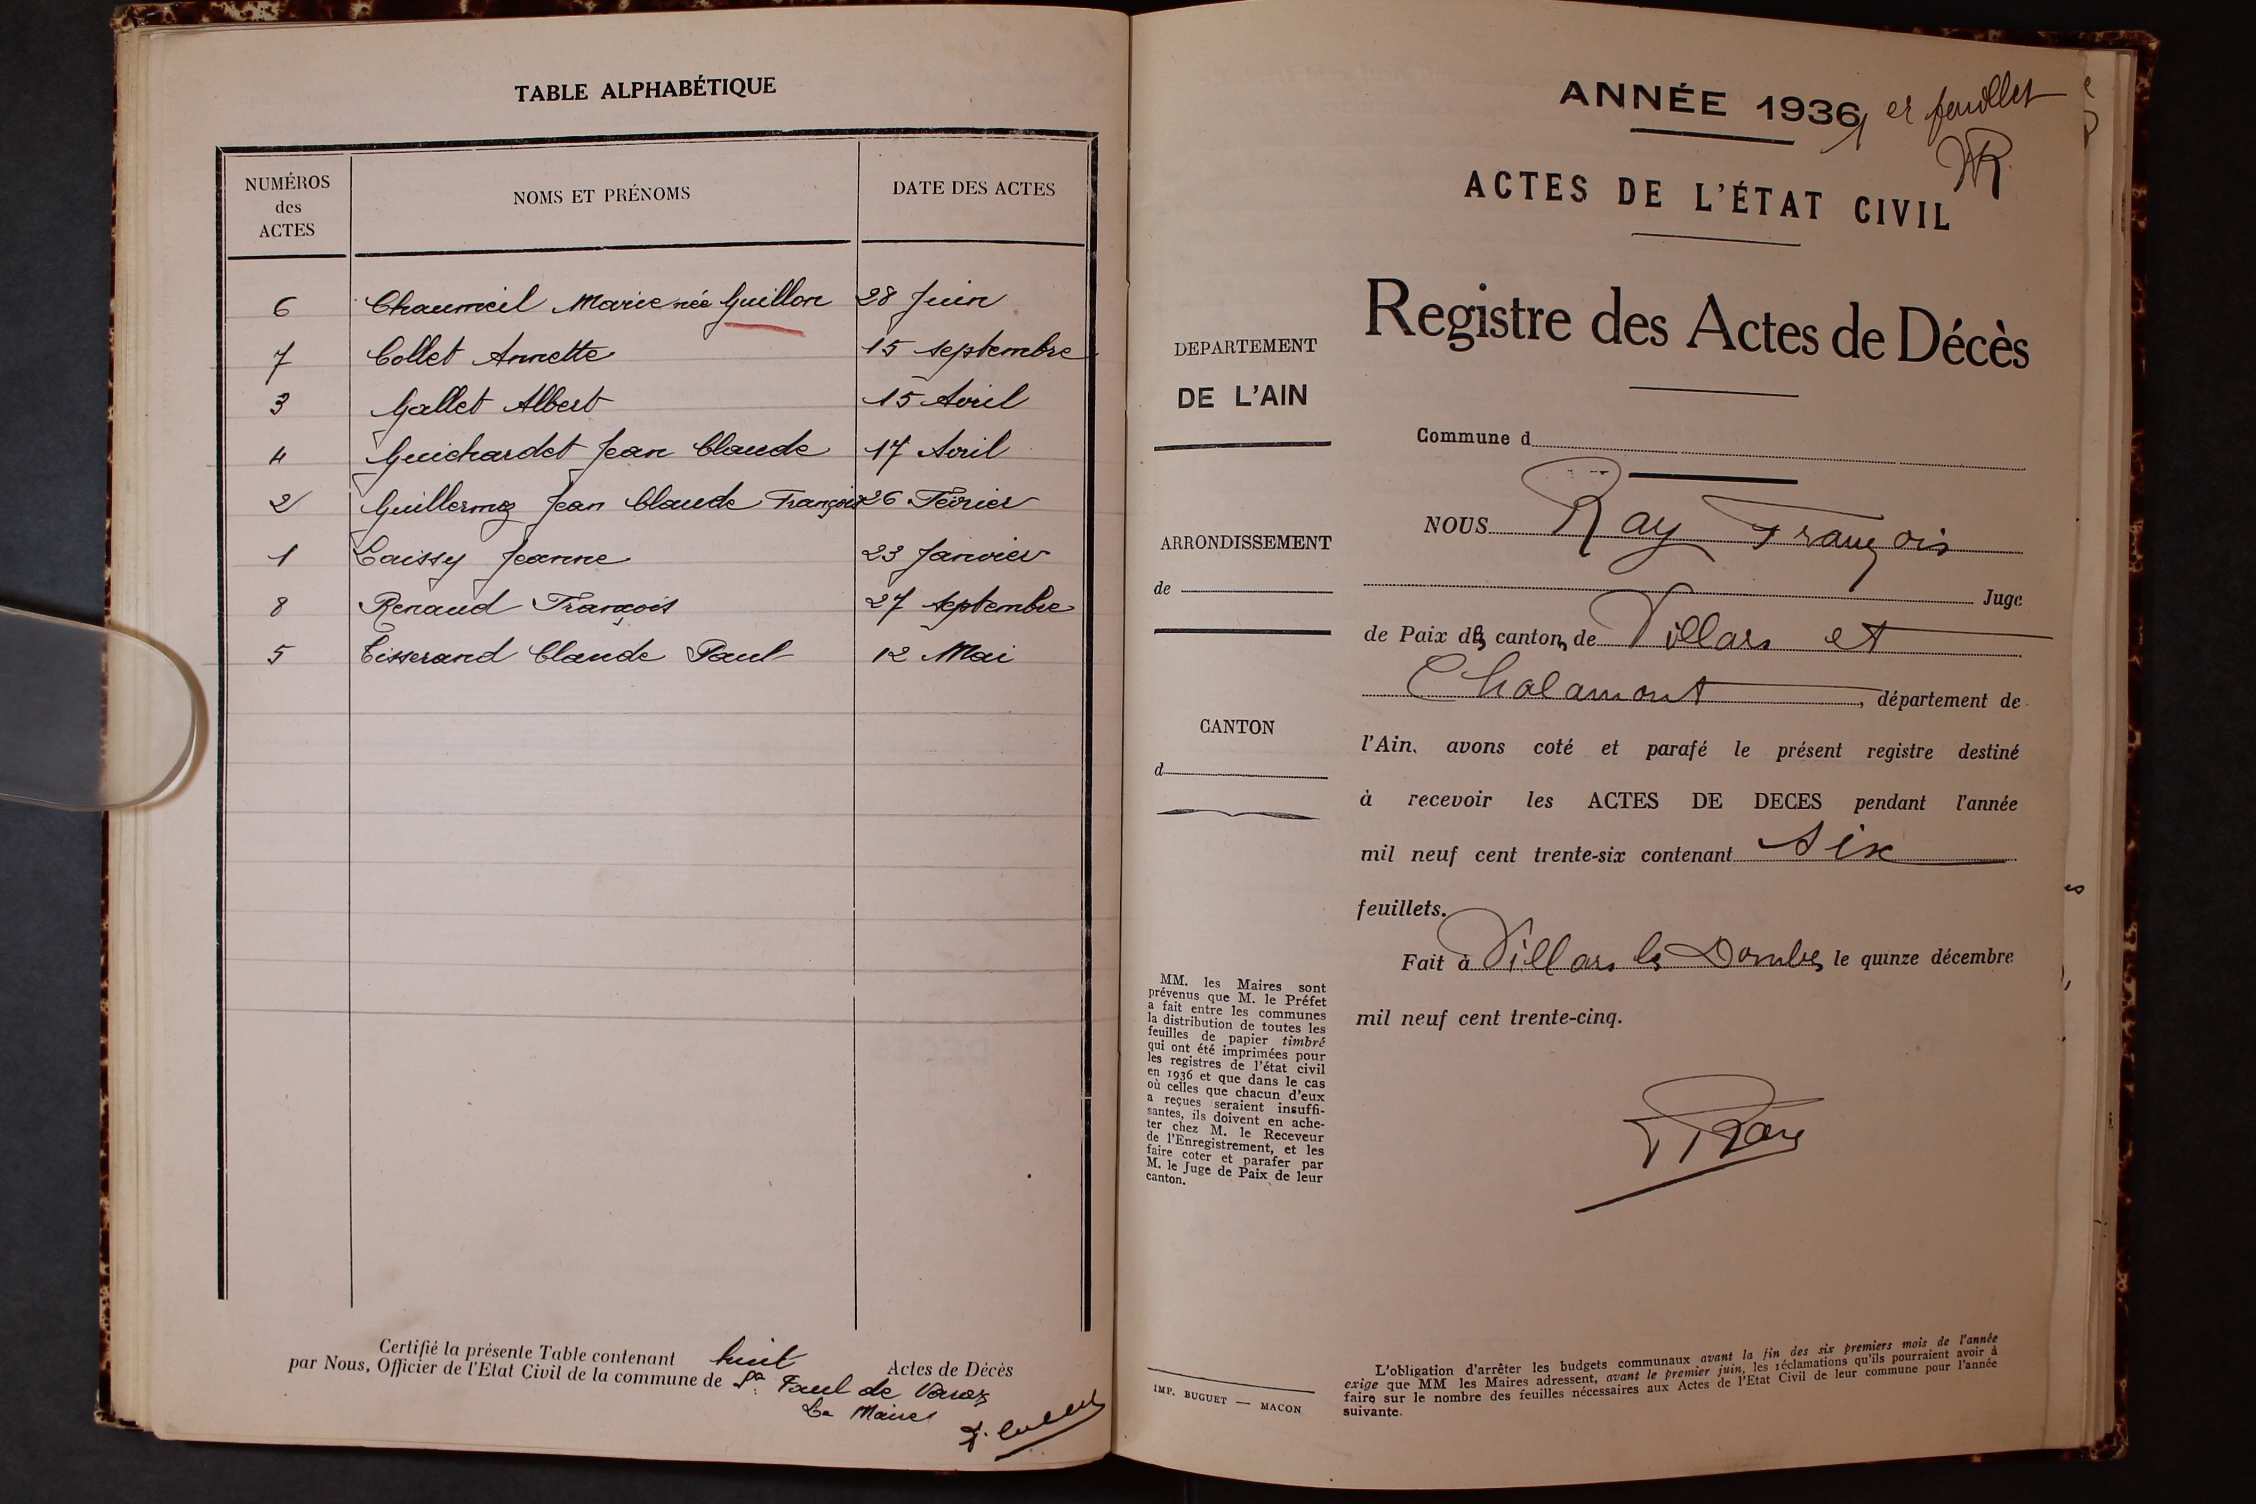 TABLE ALPHABÉTIQUE
NUMÉROS
des
ACTES
NOMS ET PRÉNOMS
DATE DES ACTES
6 Chaumeil Marie née Guillon 28 Juin
7 Collet Annette 15 septembre
3 Gallet Albert 15 Avril
4 Guichardet Jean Claude 17 Avril
2 Guillermoz Jean Claude François 26 Février
1 Laissy Jeanne 23 Janvier
8 Renaud François 27 septembre
5 Tisserand Claude Paul 12 Mai
Certifié la présente Table contenant huit Actes de Décès
par Nous, Officier de l'Etat Civil de la commune de St Paul de Varax
Le Maire
ANNÉE 1936
1er feuillet
ACTES DE L'ÉTAT CIVIL
Registre des Actes de Décès
DEPARTEMENT
DE L'AIN
ARRONDISSEMENT
de
CANTON
d
Commune d
NOUS Ray François
Juge
de Paix des cantons de Villars et
Chalamont, département de
l'Ain, avons coté et parafé le présent registre destiné
à recevoir les ACTES DE DECES pendant l'année
mil neuf cent trente-six contenant six
feuillets.
Fait à Villars les Dombes le quinze décembre
mil neuf cent trente-cinq.
FRay
MM. les Maires sont
prévenus que M. le Préfet
a fait entre les communes
la distribution de toutes les
feuilles de papier timbré
qui ont été imprimées pour
les registres de l'état civil
en 1936 et que dans le cas
où celles que chacun d'eux
a reçues seraient insuffi-
santes, ils doivent en ache-
ter chez M. le Receveur
de l'Enregistrement, et les
faire coter et parafer par
M. le Juge de Paix de leur
canton.
IMP. BUGUET — MACON
L'obligation d'arrêter les budgets communaux avant la fin des six premiers mois de l'année
exige que MM les Maires adressent, avant le premier juin, les réclamations qu'ils pourraient avoir à
faire sur le nombre des feuilles nécessaires aux Actes de l'Etat Civil de leur commune pour l'année
suivante.